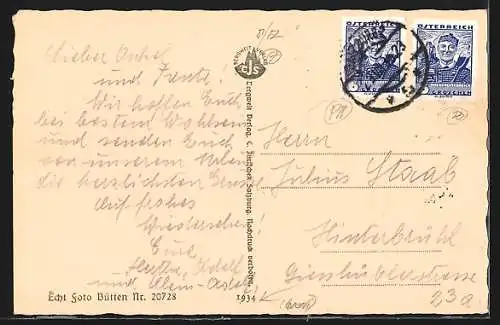 Lieber Onkel
und Tante!
Wir hoffen Euch
bei bestem Wohlsein
und senden Euch
von unserem
die herzlichsten Grüße
Auf frohes
Wiedersehen!
Eure
und Klein-
Echt Foto Bütten Nr. 20728
1934
BERGWELT VERLAG
CJS
Bergwelt Verlag, C. Jurischek Salzburg. Nachdruck verboten.
ÖSTERREICH
GROSCHEN
ÖSTERREICH
GROSCHEN
Herrn
Julius Staab
Hinterbrühl
Giesshüblerstrasse
23a.